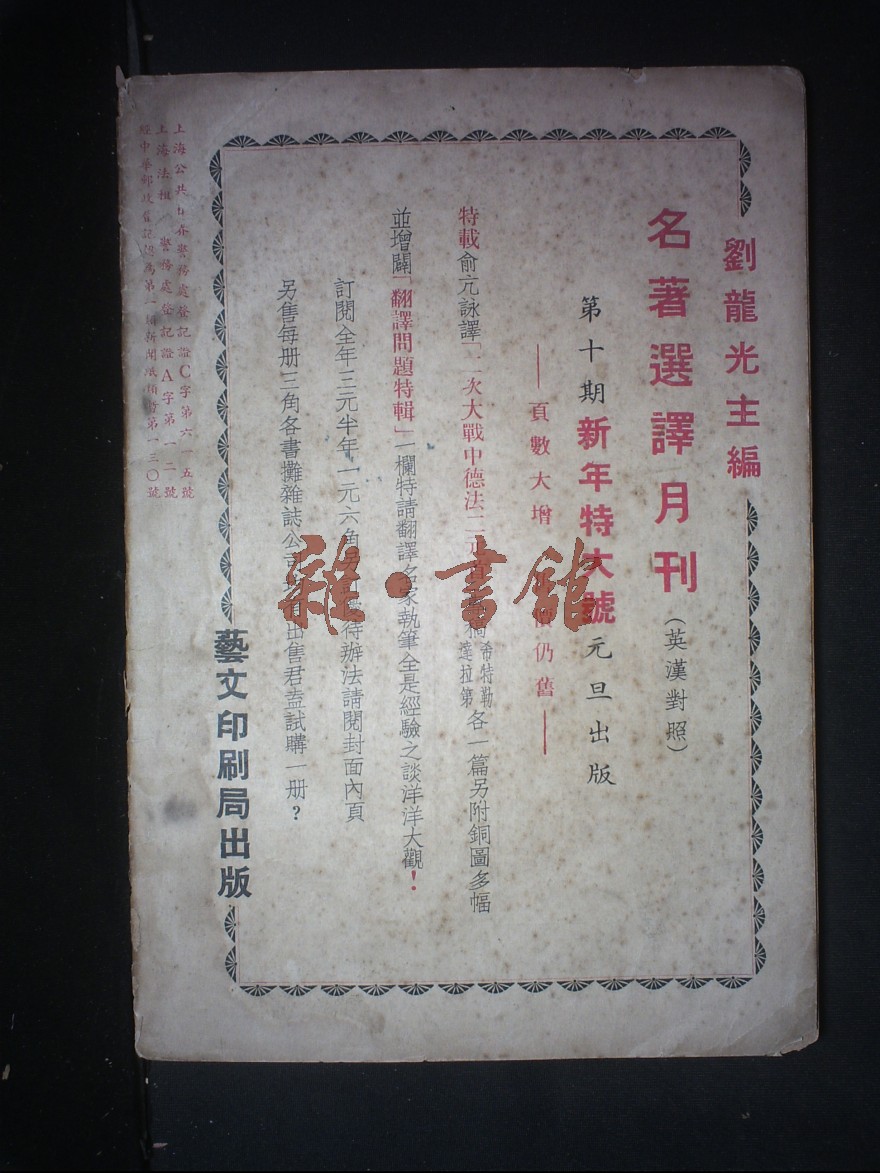 劉龍光主編
名著選譯月刊（英漢對照）
第十期新年特大號元旦出版
——頁數大增 價仍舊——
特載俞亢詠譯「二次大戰中德法二元首 希特勒達拉第各一篇另附銅圖多幅
並增闢「翻譯問題特輯」一欄特請翻譯名家執筆全是經驗之談洋洋大觀！
訂閱全年三元半年一元六角 待辦法請閱封面內頁
另售每册三角各書攤雜誌公司 出售君盍試購一册？
藝文印刷局出版
上海公共 界警務處登記證C字第六一五號
上海法租 警務處登記證A字第一二號
經中華郵政登記認爲第一類新聞紙類 第一三〇號
雜·書館